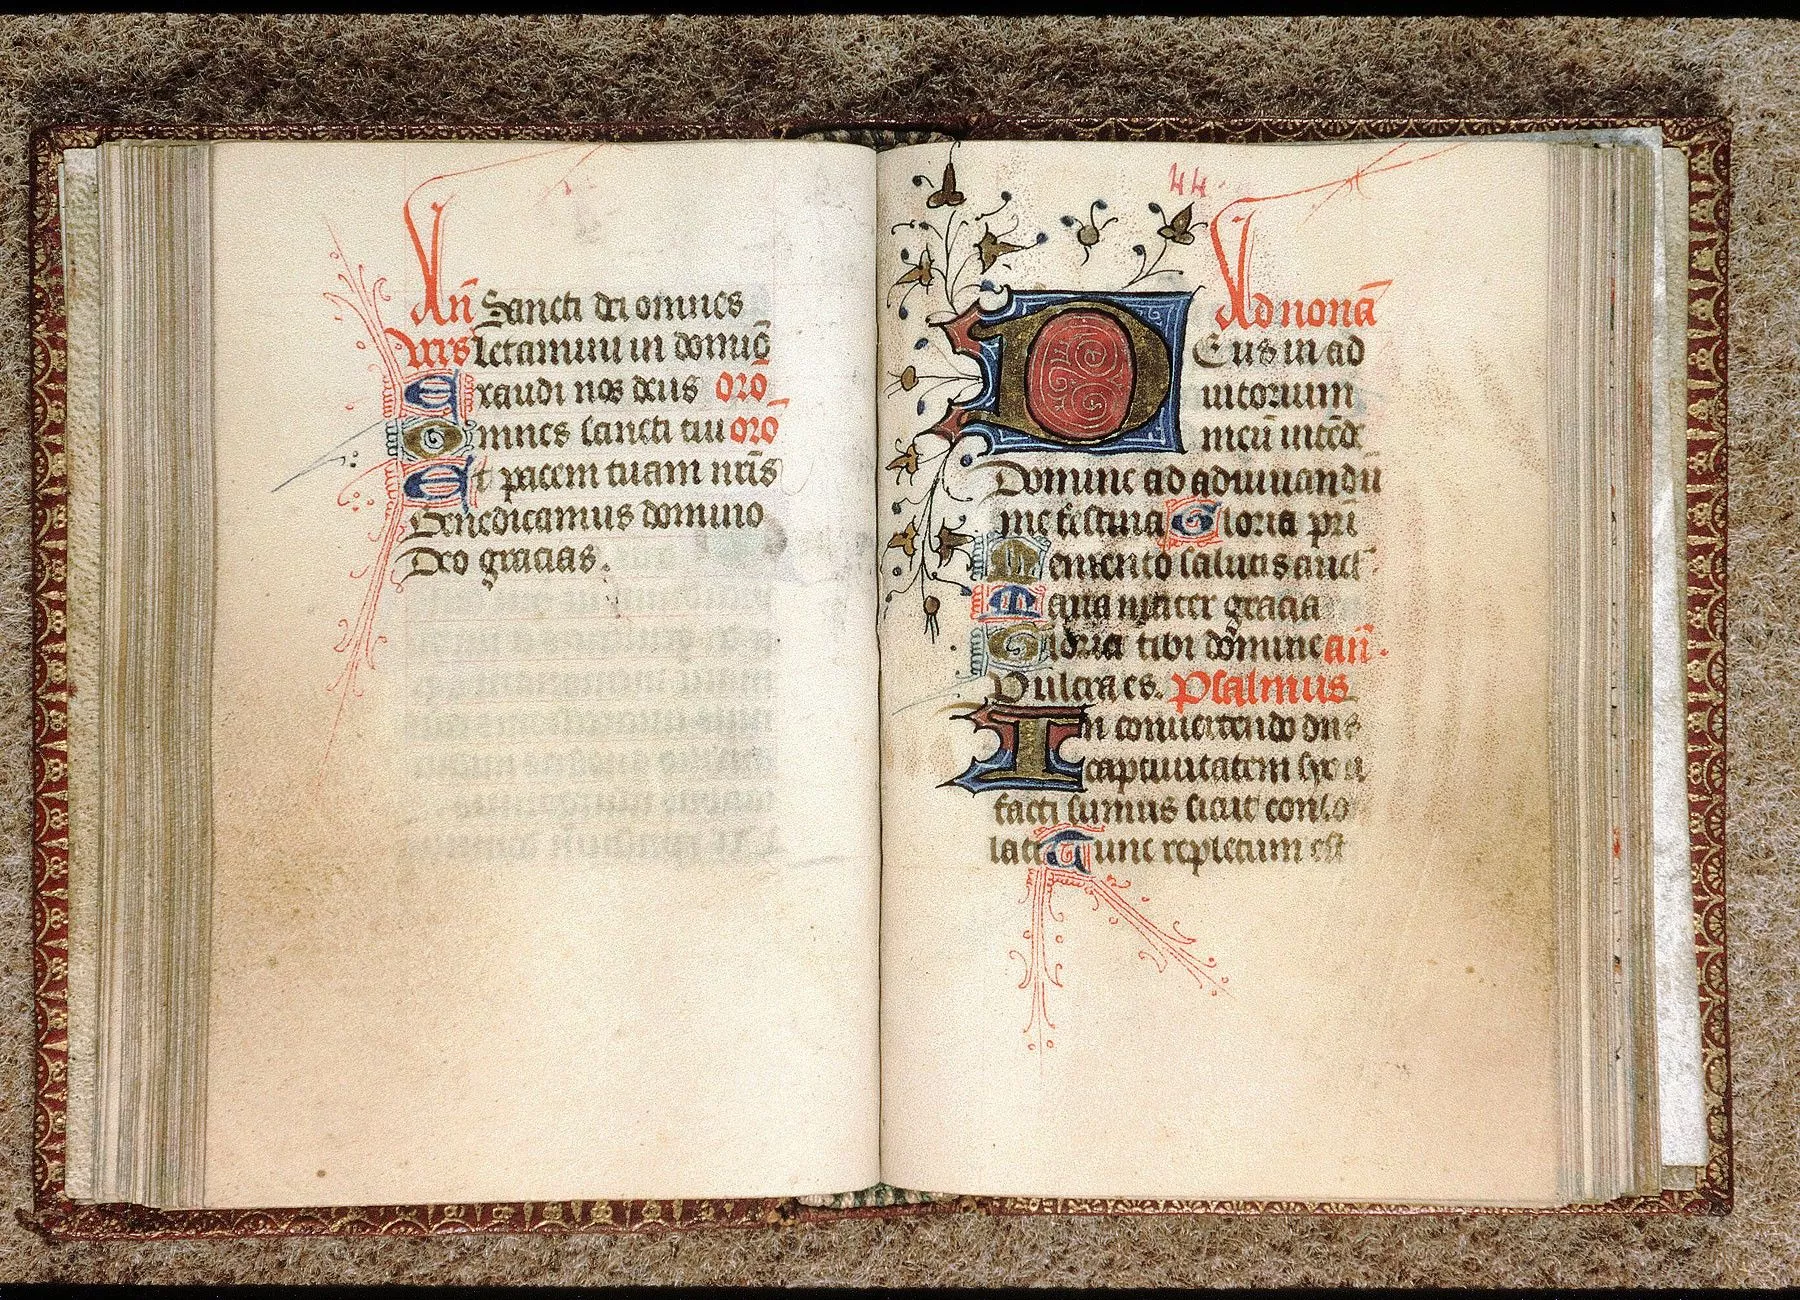 Añ Sancti dei omnes
Vrs letamini in domiō
Exaudi nos deus oro
Omnes sancti tui orō
Et pacem tuam nr̄is
Benedicamus domino
Deo gracias.
44.
Ad nonā
Deus in ad
iutorium
meū intēde
Domine ad adiuuandū
me festina Gloria pri
Memento salutis auct
Maria mater gracia
Gloria tibi domine añ.
Pulcra es. Psalmus
In conuertendo dn̄s
captiuitatem syon
facti sumus sicut conso
lati Tunc repletum est